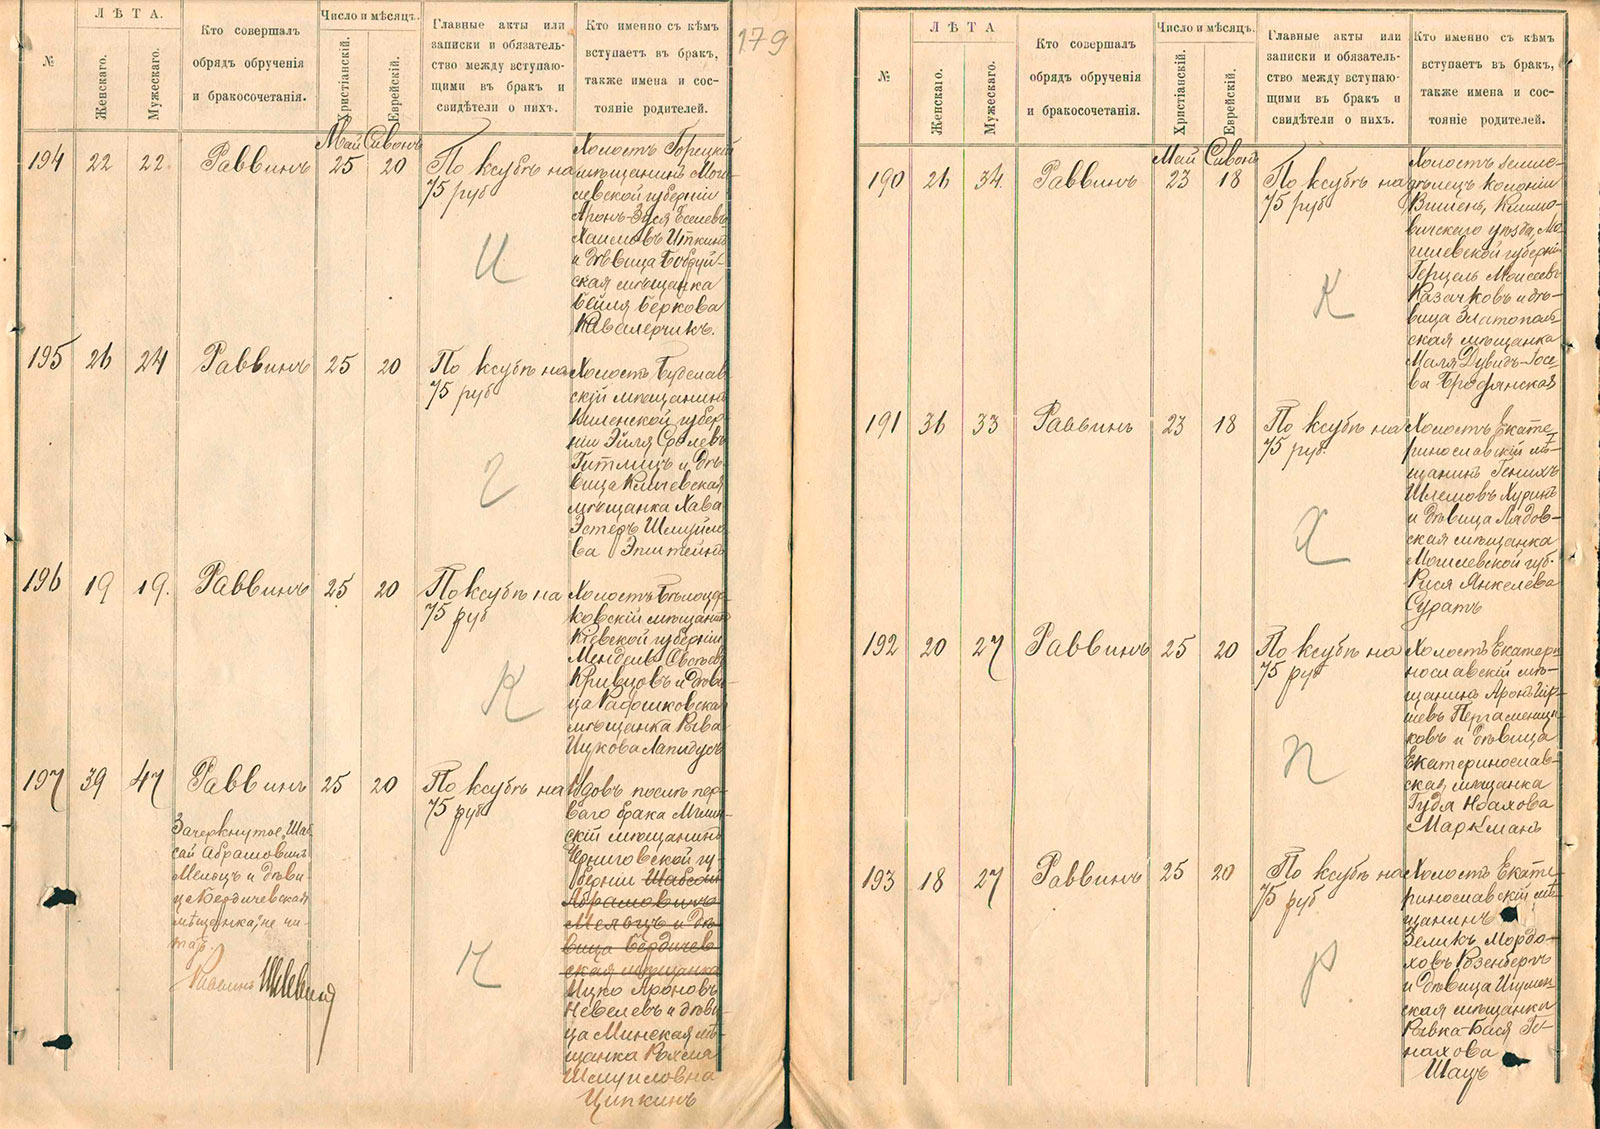 179
№
ЛѢТА.
Женскаго.
Мужескаго.
Кто совершалъ
обрядъ обрученія
и бракосочетанія.
Число и мѣсяцъ.
Христіанскій.
Еврейскій.
Главные акты или
записки и обязатель-
ство между вступаю-
щими въ бракъ и
свидѣтели о нихъ.
Кто именно съ кѣмъ
вступаетъ въ бракъ,
также имена и сос-
тояніе родителей.
Май Сивонъ
194 22 22 Раввинъ 25 20
По ксубѣ на
75 руб
И
Холостъ Горецкій
мѣщанинъ Моги-
левской губерніи
Аронъ-Зуся Еселевъ
Хаимовъ Иткинъ
и дѣвица Бобруй-
ская мѣщанка
Бейля Беркова
Кавалерчикъ.
195 26 24 Раввинъ 25 20
По ксубѣ на
75 руб
Г
Холостъ Будслав
скій мѣщанинъ
Виленской губер-
ніи Эйля Сролевъ
Гитлицъ и дѣ-
вица Кличевская
мѣщанка Хава
Эстеръ Шмуйло-
ва Эпштейнъ
196 19 19. Раввинъ 25 20
По ксубѣ на
75 руб
К
Холостъ Бѣлоцер-
ковскій мѣщанинъ
Кіевской губерніи
Мендель
Кривцовъ и дѣви-
ца Радошковская
мѣщанка Рыва
Ицкова Лапидусъ
197 39 47 Раввинъ 25 20
По ксубѣ на
75 руб
Н
Зачеркнутое „Шаб-
сай Абрамовичъ
Мелоцъ и дѣви-
ца Бердичевская
мѣщанка“, не чи-
тать.
Раввинъ
Вдовъ послѣ пер-
ваго брака Мглин-
скій мѣщанинъ
Черниговской гу-
берніи Шабсай
Абрамовичъ
Мелоцъ и дѣ-
вица Бердичев
ская мѣщанка
Ицко Ароновъ
Невелевъ и дѣви-
ца Минская мѣ-
щанка Рохля
Шмуиловна
Ципкинъ
№
ЛѢТА.
Женскаго.
Мужескаго.
Кто совершалъ
обрядъ обрученія
и бракосочетанія.
Число и мѣсяцъ.
Христіанскій.
Еврейскій.
Главные акты или
записки и обязатель-
ство между вступаю-
щими въ бракъ и
свидѣтели о нихъ.
Кто именно съ кѣмъ
вступаетъ въ бракъ,
также имена и сос-
тояніе родителей.
Май Сивонъ
190 26 34. Раввинъ 23 18
По ксубѣ на
75 руб
К
Холостъ земле-
дѣлецъ колоніи
Вишень, Климо-
вичскаго уѣзда, Мо-
гилевской губерніи
Герцель Моисеевъ
Казачковъ и дѣ-
вица Златополь-
ская мѣщанка
Маля Дувидъ-Іосе-
ва Бродянская
191 36 33 Раввинъ 23 18
По ксубѣ на
75 руб.
Х
Холостъ Екате-
ринославскій мѣ-
щанинъ Генихъ
Шлемовъ Хуринъ
и дѣвица Лядов-
ская мѣщанка
Могилевской губ.
Рися Янкелева
Суратъ
192 20 27 Раввинъ 25 20
По ксубѣ на
75 руб
П
Холостъ Екатери
нославскій мѣ-
щанинъ Аронъ Гир-
шевъ Пергаменщи-
ковъ и дѣвица
Екатеринослав-
ская мѣщанка
Гудя Нохова
Маркманъ
193 18 27 Раввинъ 25 20
По ксубѣ на
75 руб
Р
Холостъ Екате-
ринославскій мѣ-
щанинъ
Зеликъ Мордо-
ховъ Розенбергъ
и дѣвица Игумен-
ская мѣщанка
Рывка-Бася Ге-
нахова
Шацъ